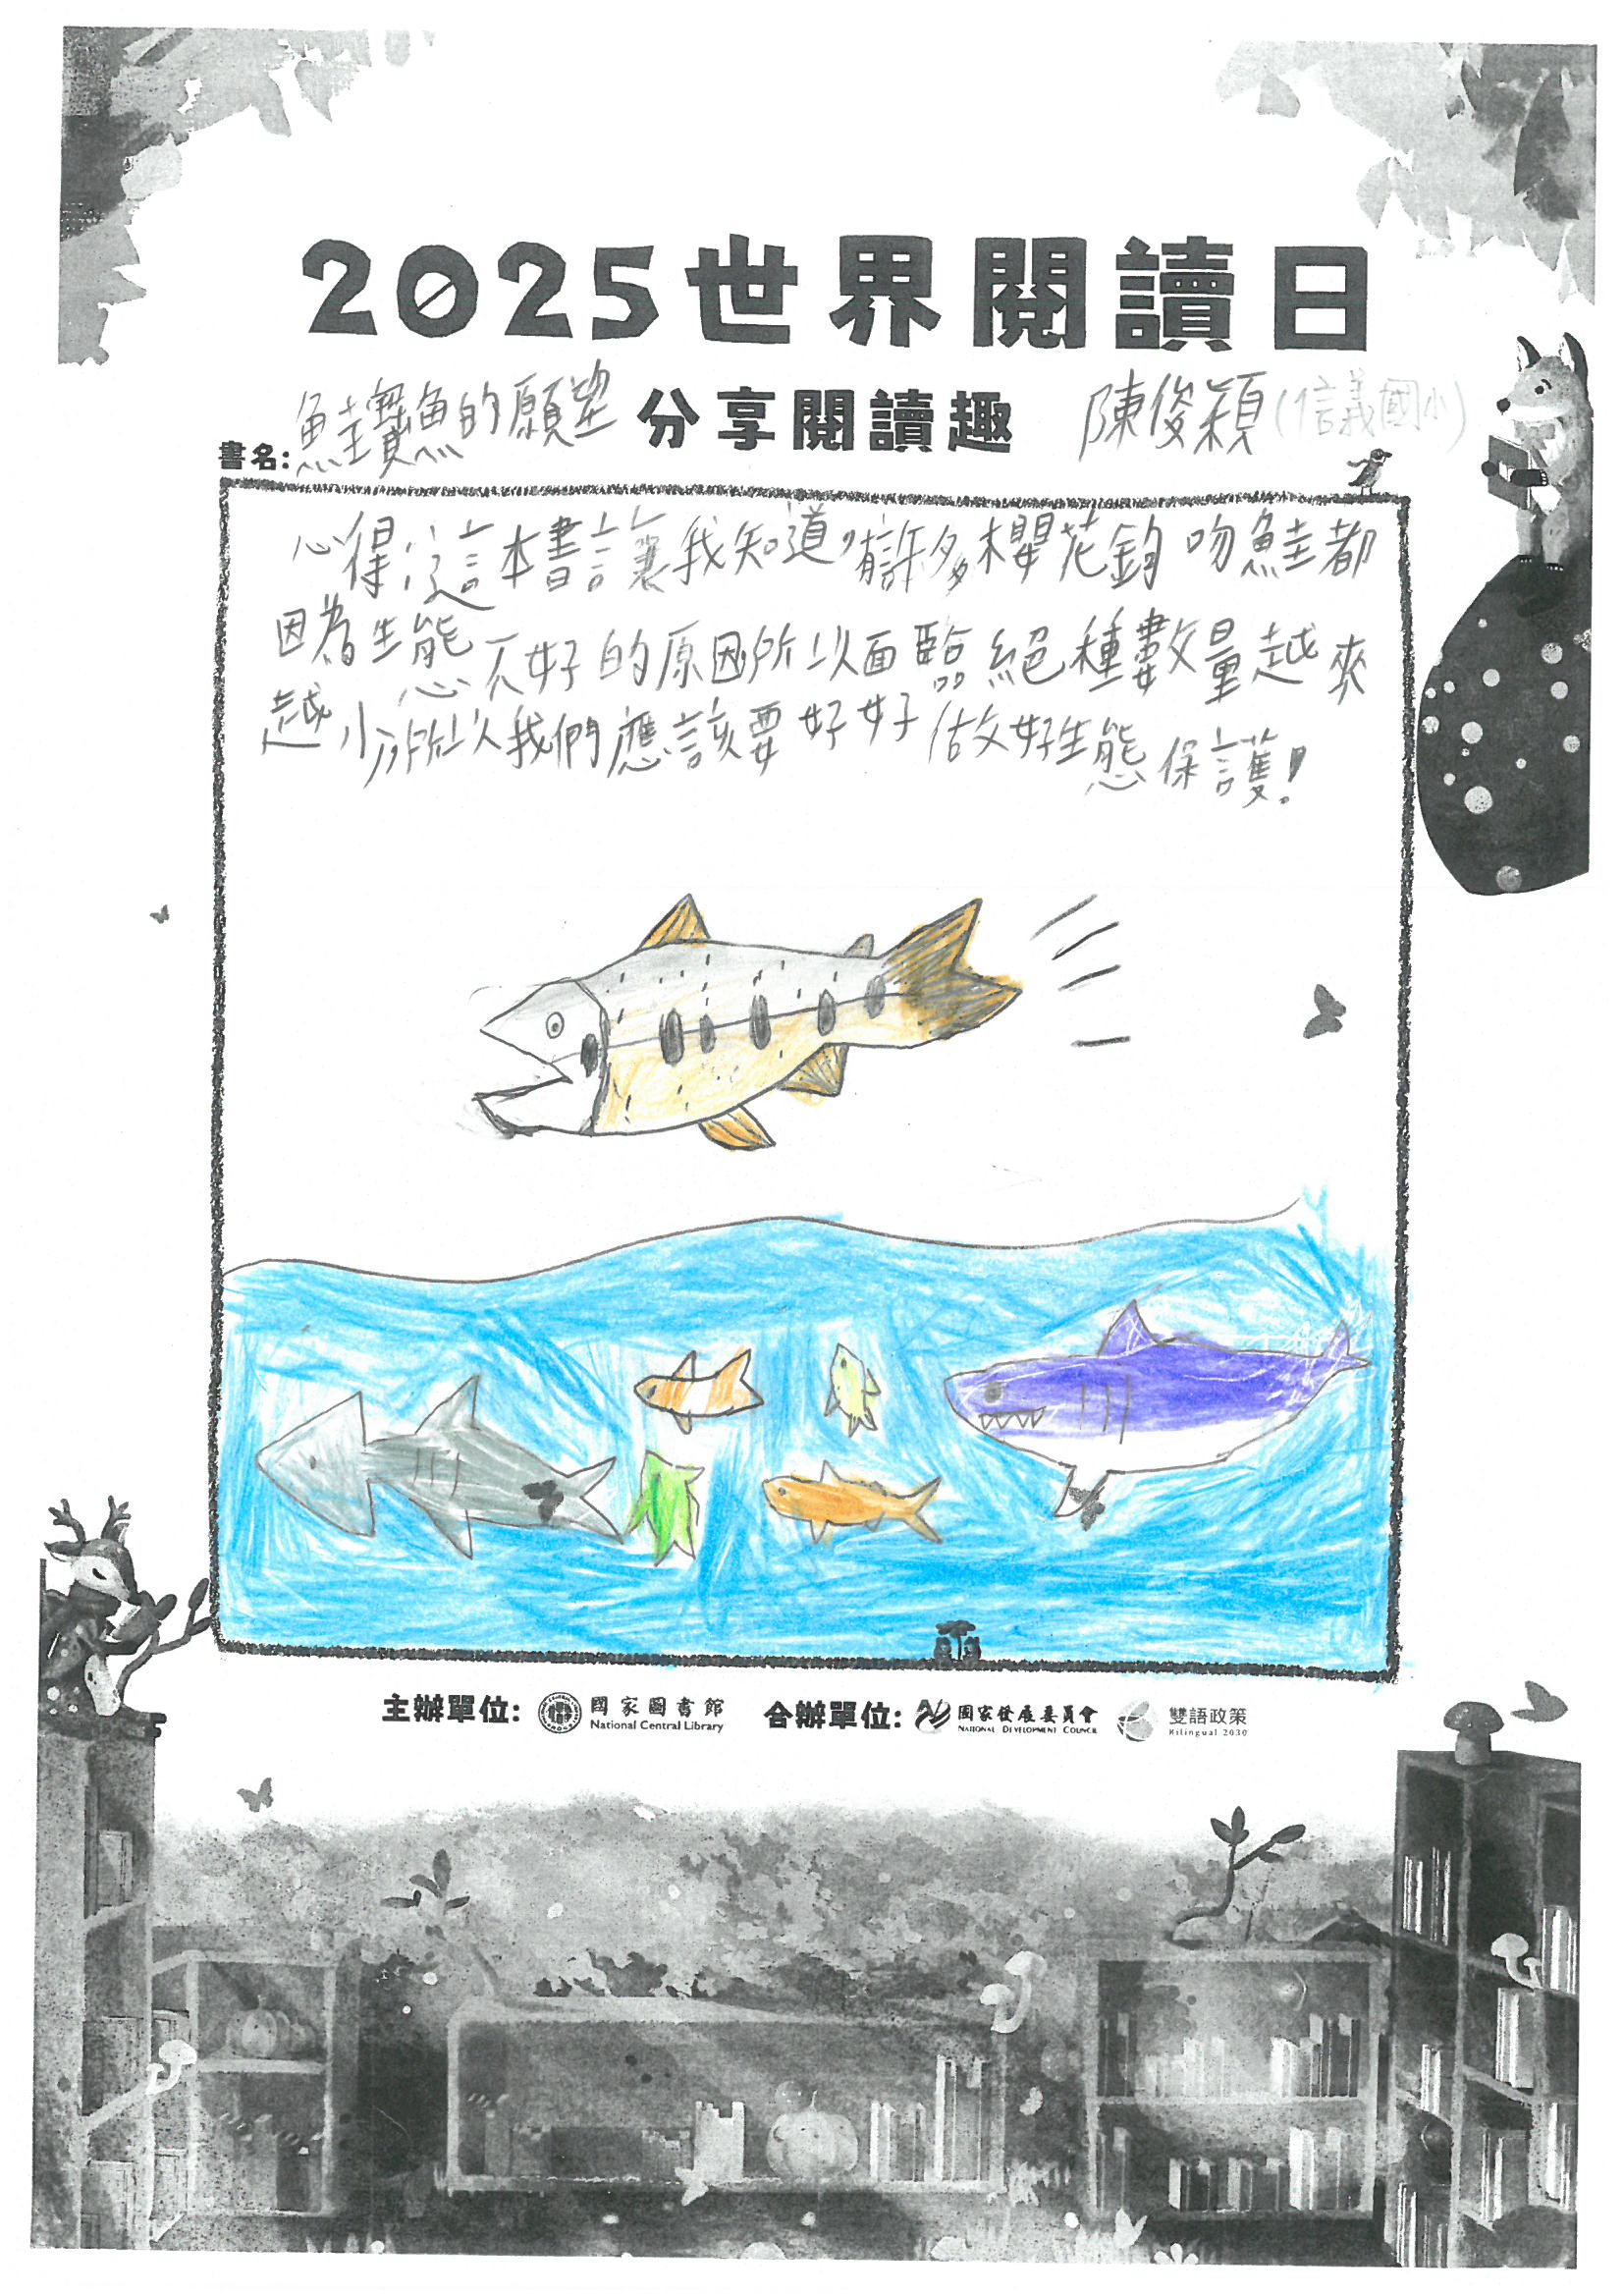 2025世界閱讀日
分享閱讀趣
書名:鮭寶魚的願望
陳俊穎(信義國小)
心得:這本書讓我知道,有許多櫻花鉤吻鮭都
因為生態不好的原因所以面臨絕種數量越來
越少所以我們應該要好好做好生態保護!
主辦單位: 國家圖書館 National Central Library 合辦單位: 國家發展委員會 National Development Council 雙語政策 Bilingual 2030